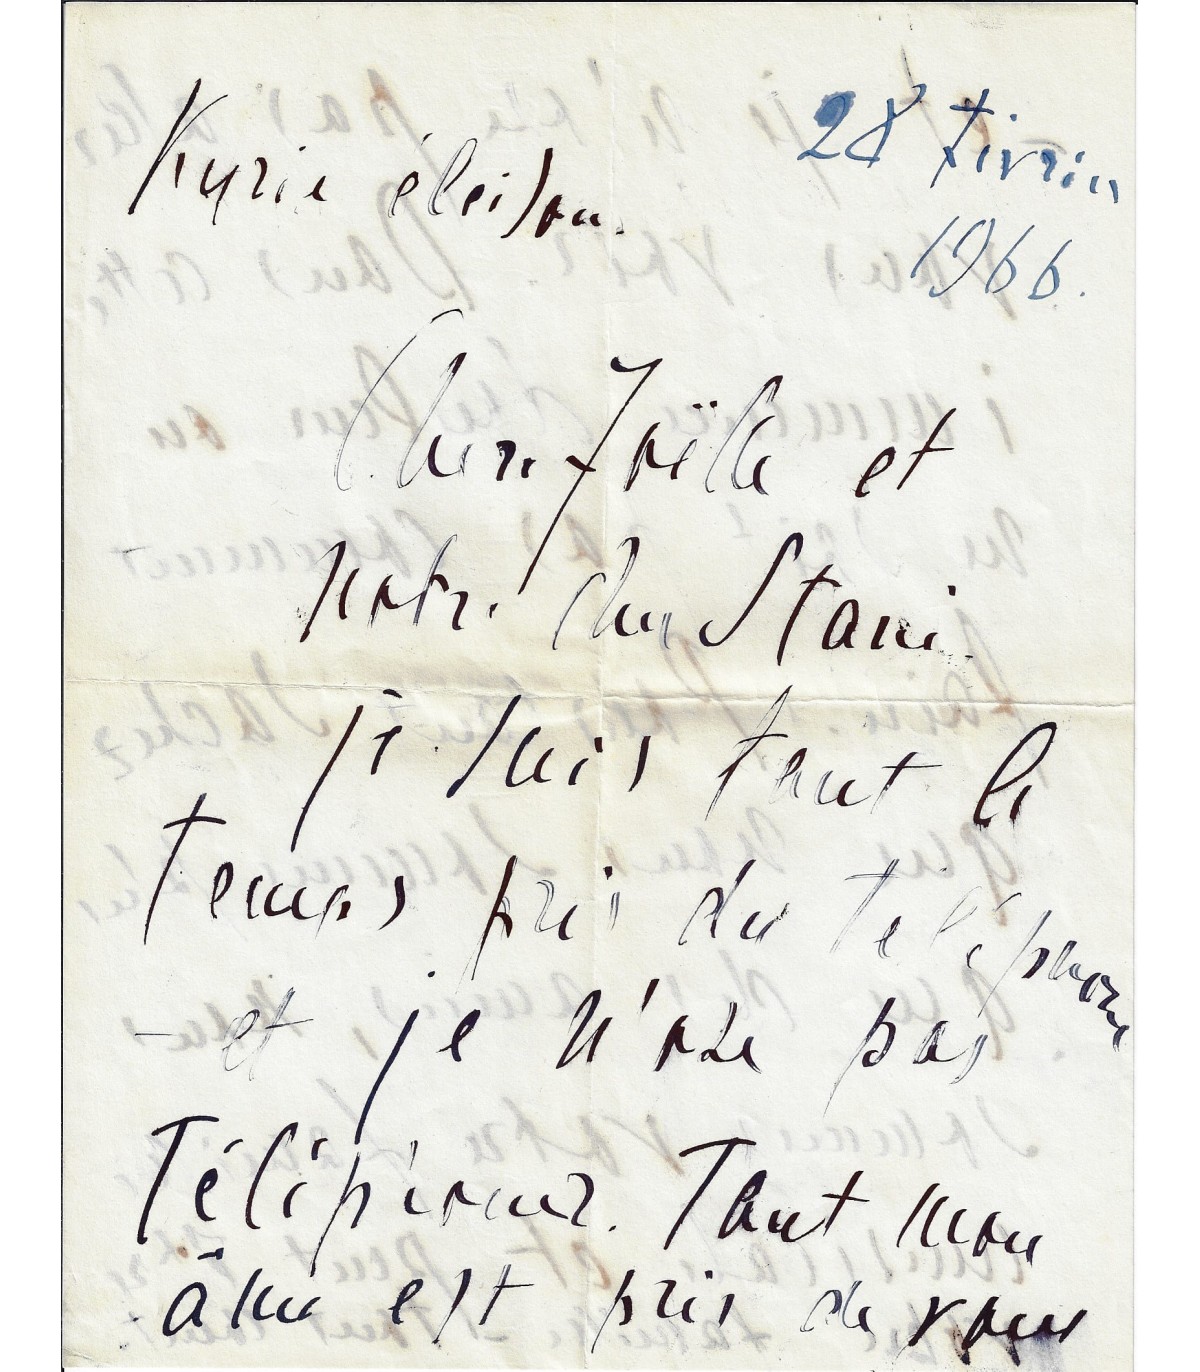 Kyrie éleison.
28 février
1966.
Chère Joëlle et
notre cher Stani.
je suis tout le
temps près du téléphone
- et je n'ose pas
Téléphoner. Tout mon
âme est près de vous